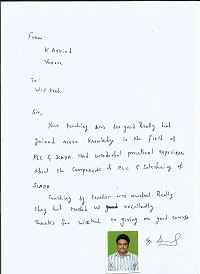 From:
K. Arvind
To:
Wiztech
Sir,
Your teaching was so good Really had
gained more knowledge in the field of
PLC & SCADA. Had wonderful practical experience
about the components of PLC & Interfacing of
SCADA.
Teaching by teacher was excellent. Really
they had treated us good excellently.
Thanks for Wiztech in giving us good course